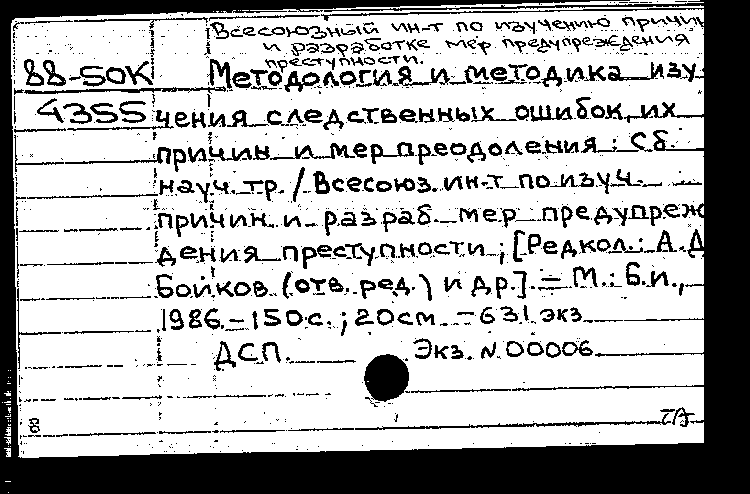 Всесоюзный ин-т по изучению причин
и разработке мер предупреждения
преступности.
88-50К Методология и методика изу-
4355 чения следственных ошибок, их
причин и мер преодоления : Сб.
науч. тр. / Всесоюз. ин-т по изуч.
причин и разраб. мер предупреж
дения преступности ; [Редкол.: А.Д
Бойков (отв. ред.) и др.]. – М. : Б.и.,
1986. – 150 с. ; 20 см. – 631 экз
ДСП. Экз. N 00006.